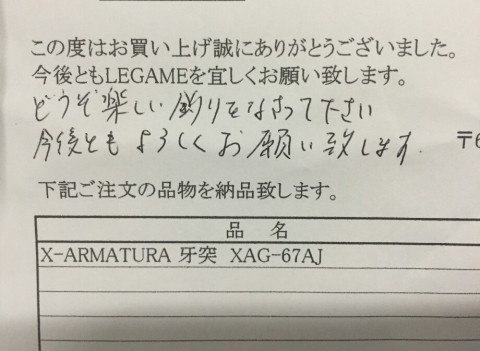 この度はお買い上げ誠にありがとうございました。
今後ともLEGAMEを宜しくお願い致します。
どうぞ楽しい釣りをなさって下さい
今後ともよろしくお願い致します.
〒6
下記ご注文の品物を納品致します。
品 名
X-ARMATURA 牙突 XAG-67AJ